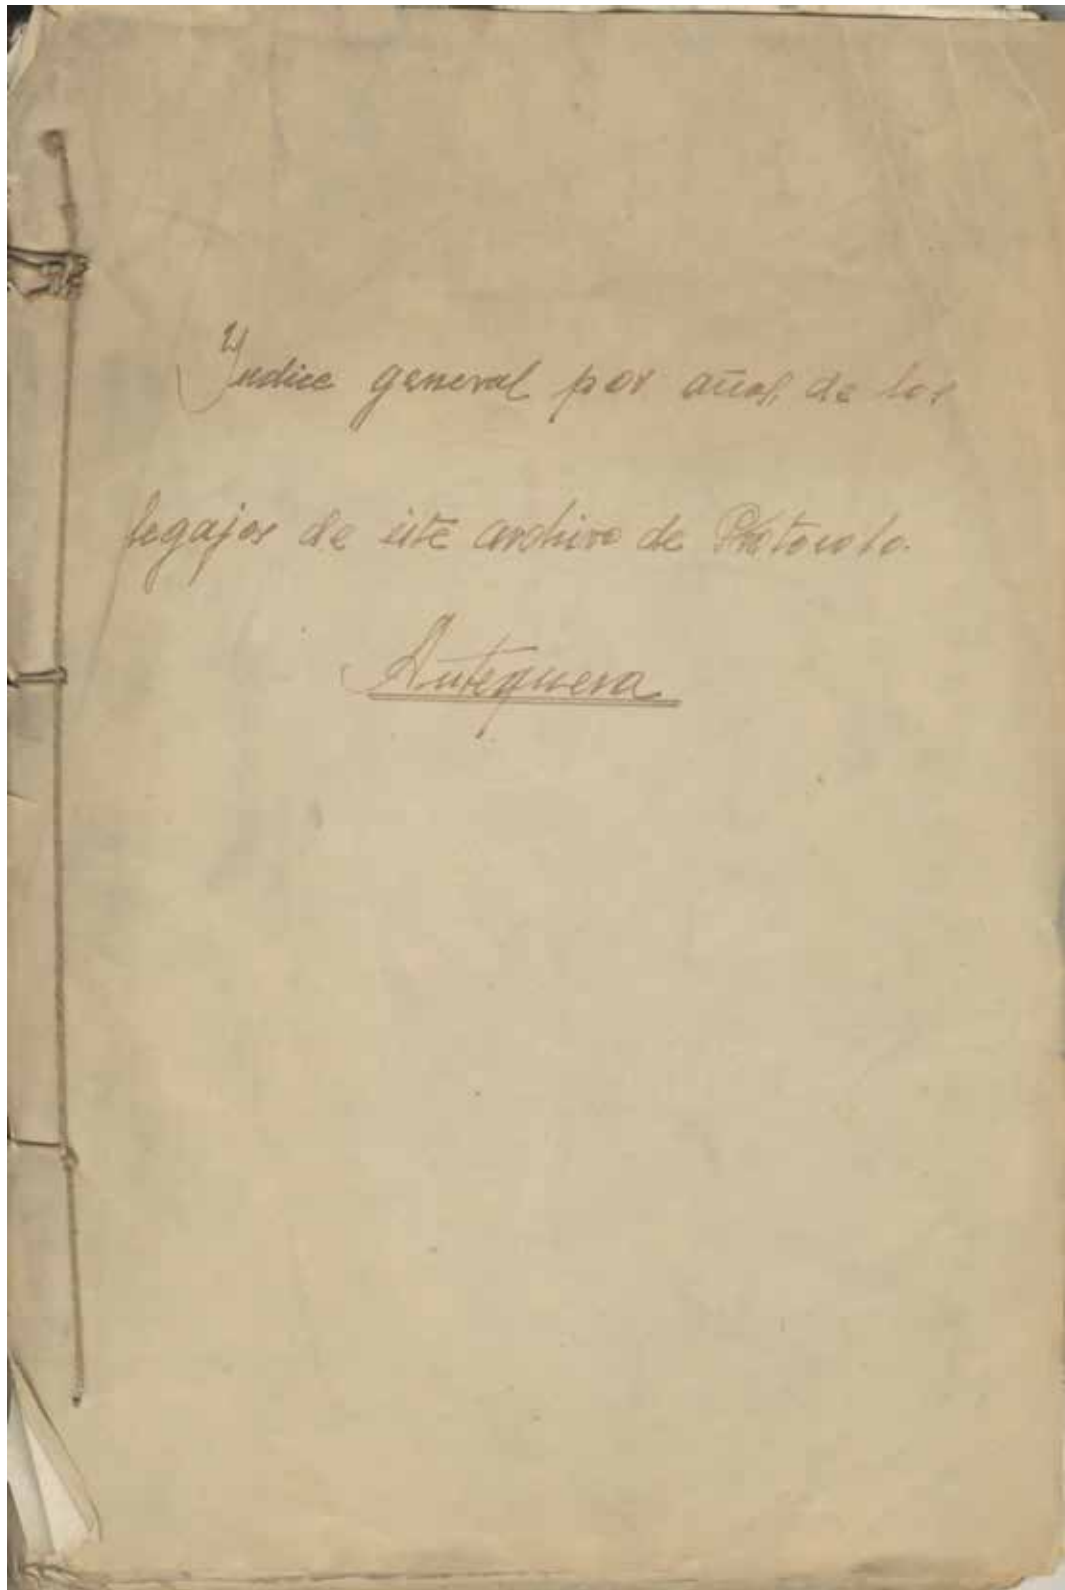 Indice general por años, de los
legajos de este archivo de Protocolo.
Antequera